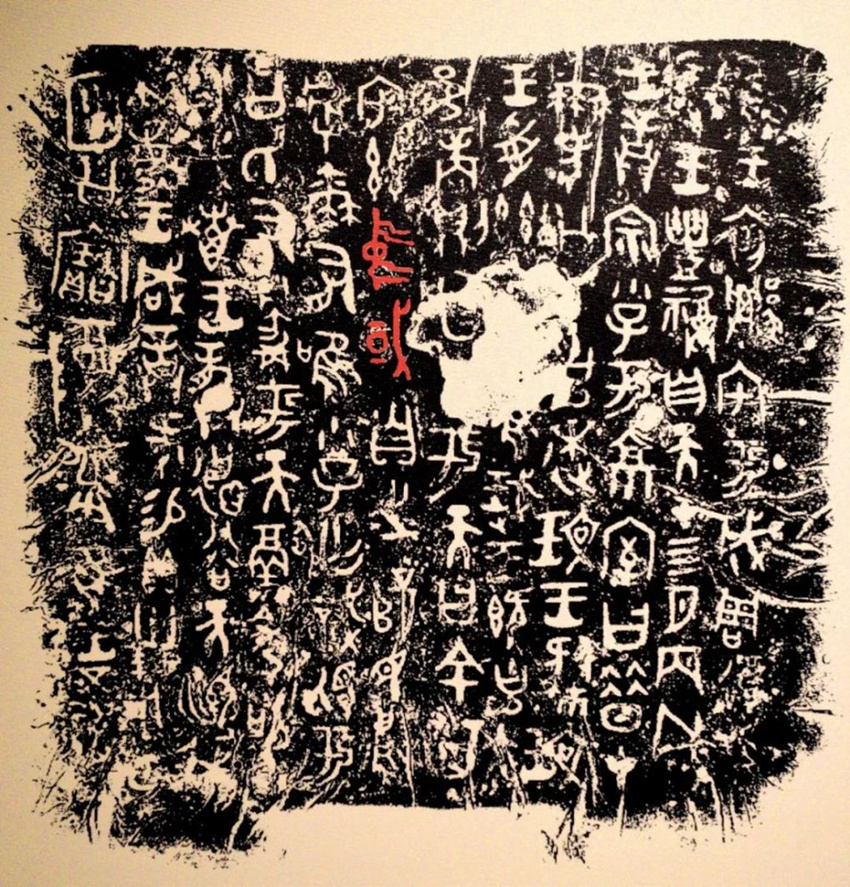 隹王初遷宅于成周復禀
王豐福自天才四月丙戌
王誥宗小子于京室曰昔才
爾考公氏克逨玟王肆玟
王受茲大令隹珷王既克大
邑商則廷告于天曰余其
宅茲中或自之乂民烏
虖爾有唯小子亡識視于
公氏有爵于天徹令敬
享哉叀王恭德谷天順我
不敏王咸誥何易貝卅朋用乍
公寶尊彝隹王五祀